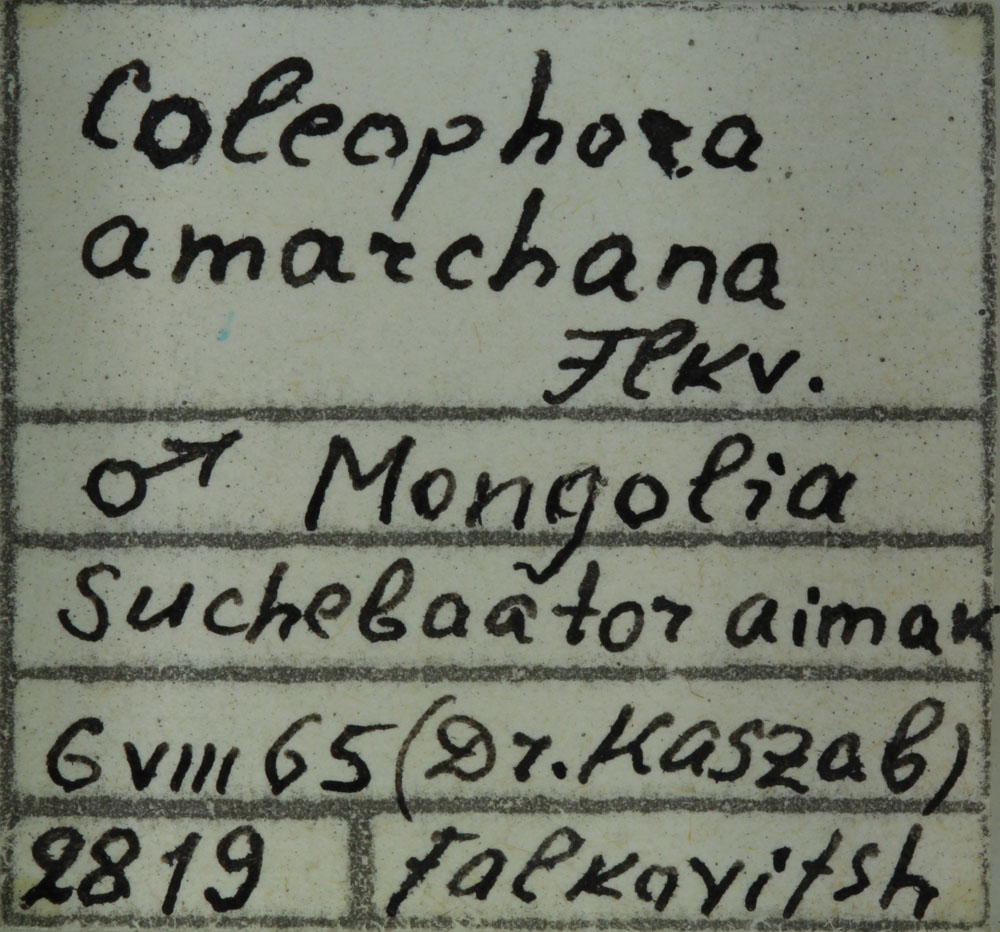 Coleophora
amarchana
Flkv.
♂ Mongolia
Suchebaãtor aimak
6 VIII 65 (Dr. Kaszab)
2819 Falkovitsh